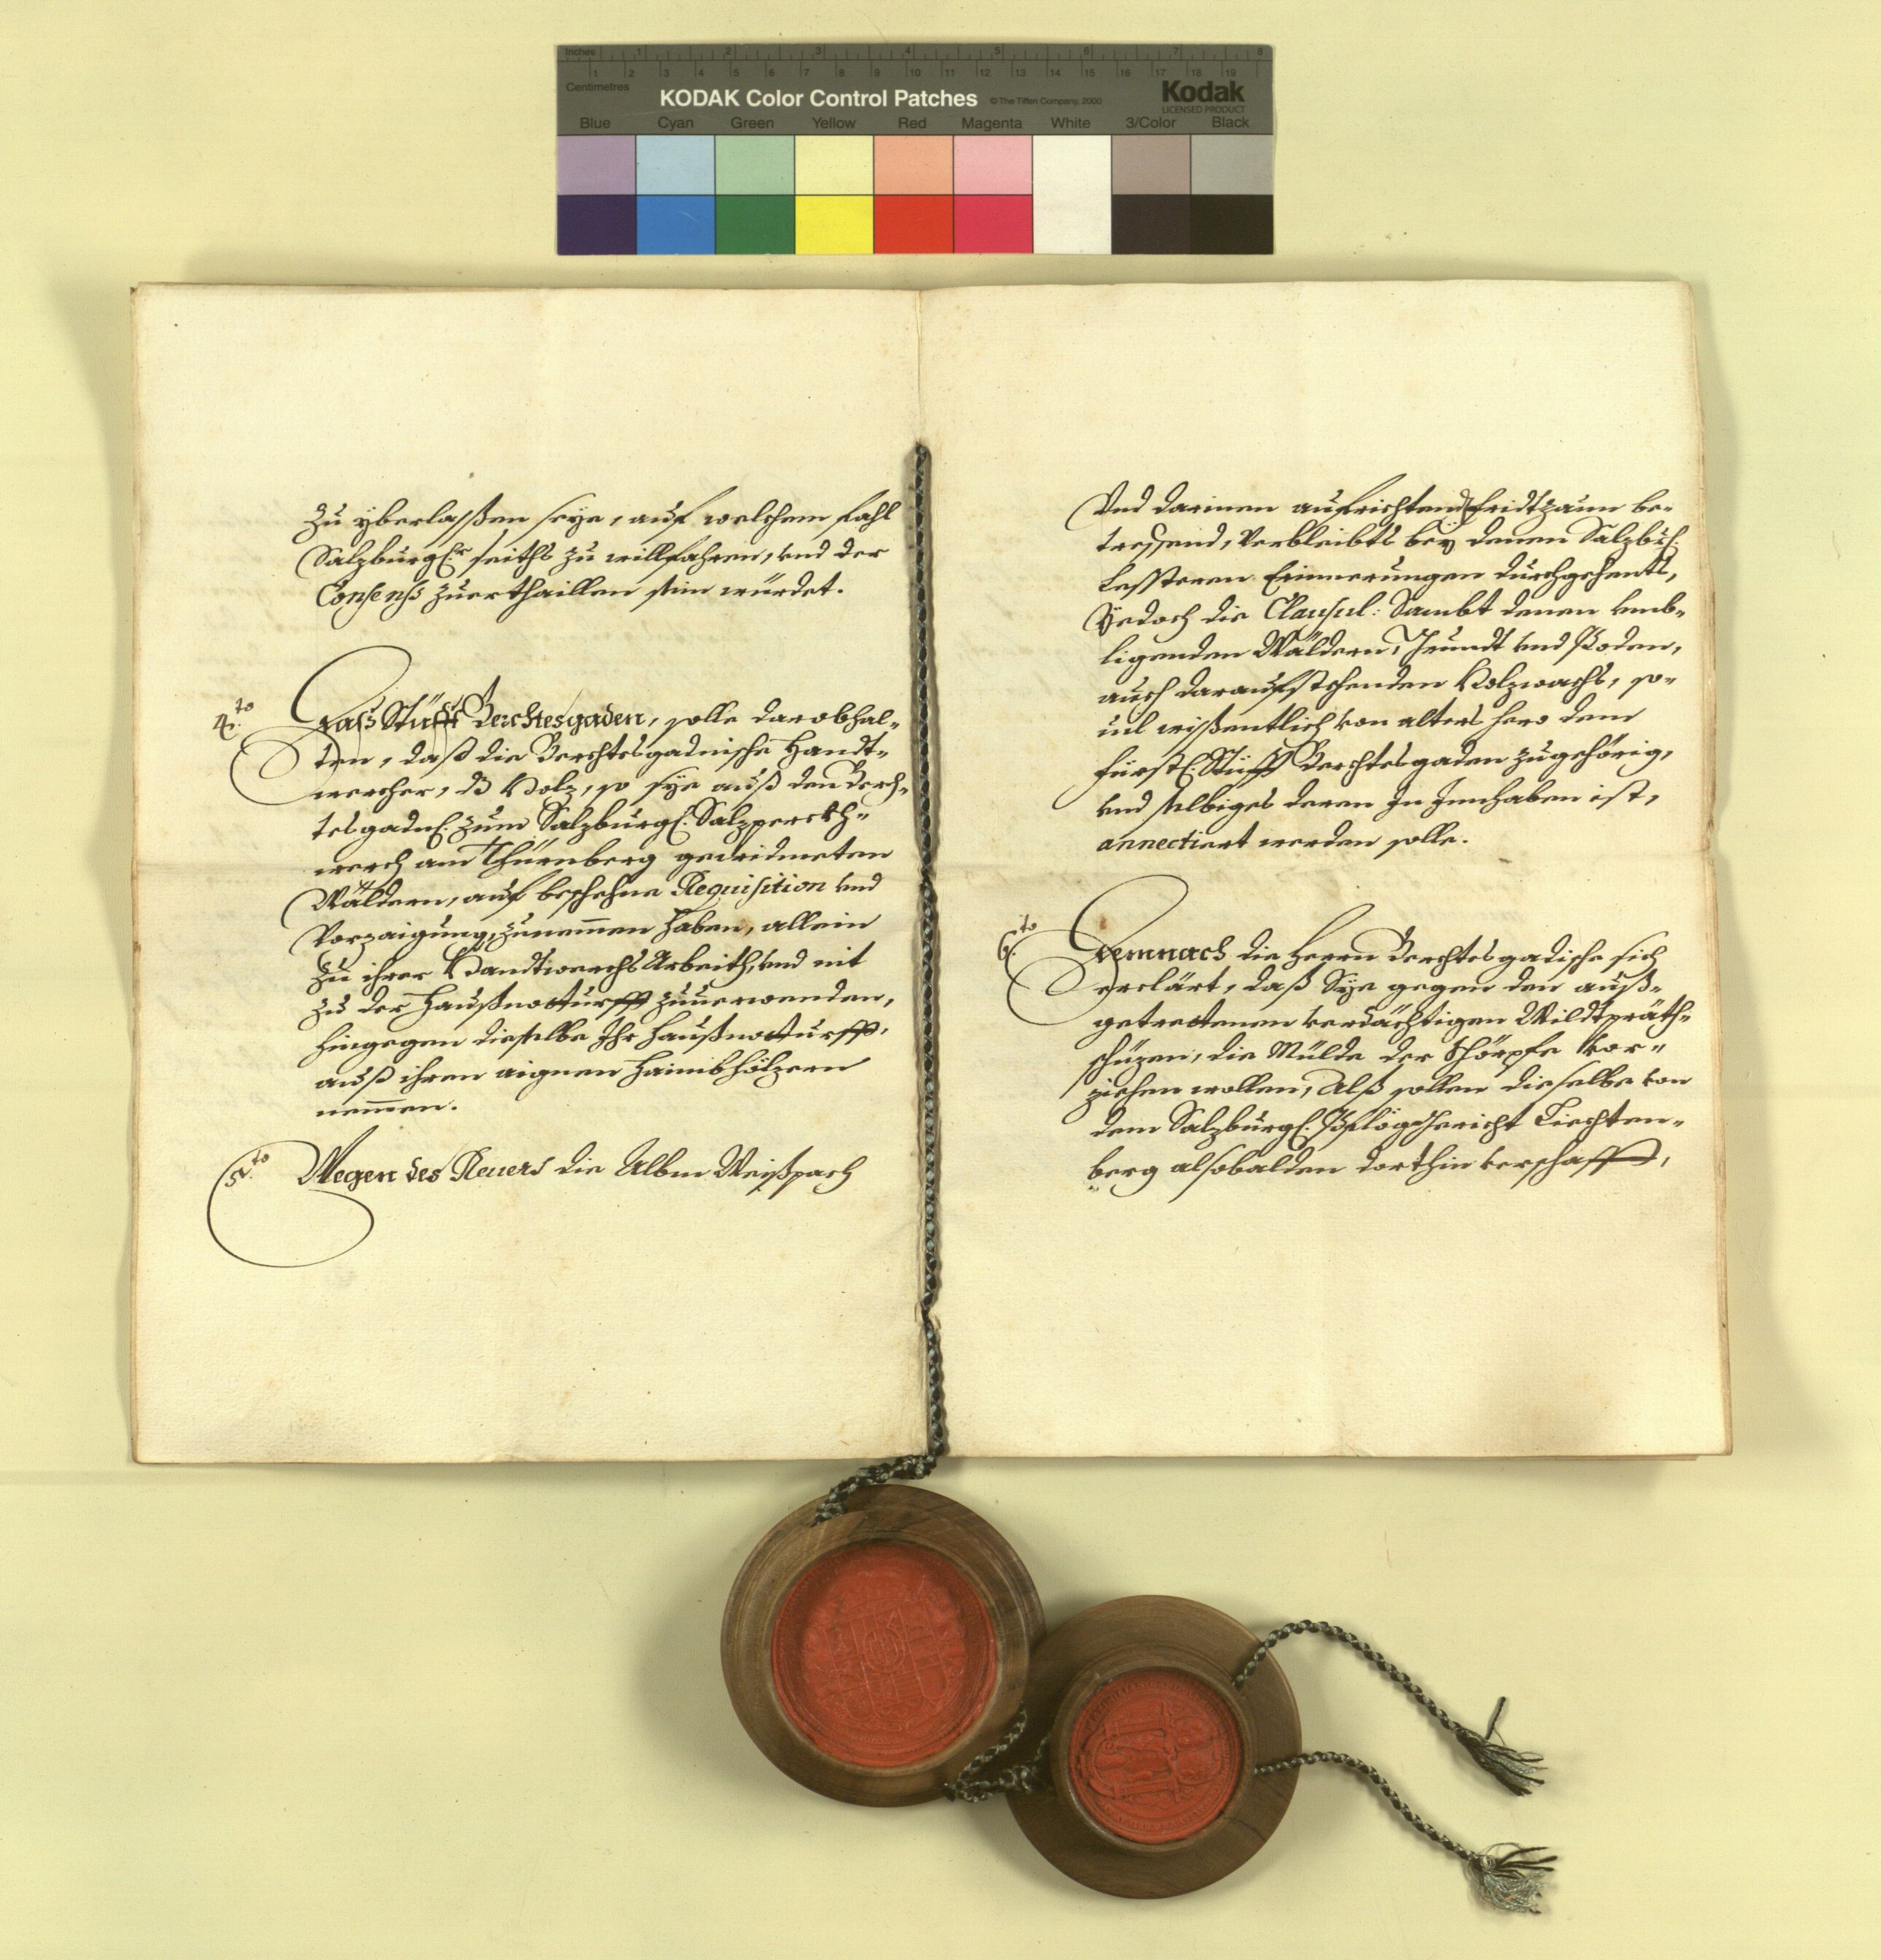 Inches 1 2 3 4 5 6 7 8
1 2 3 4 5 6 7 8 9 10 11 12 13 14 15 16 17 18 19
Centimetres
KODAK Color Control Patches © The Tiffen Company, 2000 Kodak
LICENSED PRODUCT
Blue Cyan Green Yellow Red Magenta White 3/Color Black
zu yberlassen seye, auf welchem fahl
Salzburg: seiths zu willfahren, vnd der
Consens zuerthaillen sein würdet.
4.to Das Stüfft Berchtesgaden, solle darobhal-
ten, daß die Berchtesgadnische Handt-
wercher, dz Holz, so sye auß den Berch-
tesgadn: zum Salzburg: Salzperckh-
werch am Thürnberg gewidmeten
Wäldern, auf beschehne Requisition vnd
Vorzaigung, zunemen haben, allein
zu ihrer Handtwerchs Arbeith, vnd nit
zu der Haußnotturfft zuuerwenden,
hingegen dieselbe Ihr Haußnotturfft,
auß ihren aignen Haimbhölzern
nemmen.
5.to Wegen des Reuers die Albm Weißpach
Vnd darinen aufrichtend Fridtzaun be-
treffend, Verbleibts bey denen Salzb:
lessteren Erinnerungen durchgehents,
Yedoch die Clausul: Sambt denen vmb-
ligenden Wäldern, Grundt vnd Poden,
auch darauf stehenden Holzwachs, so-
uil wißentlich von alters hero dem
fürstl: Stüfft Berchtesgaden zugehörig,
vnd selbiges deren In Innhaben ist,
annectiert werden solle.
6.to Demnach die Herrn Berchtesgadische sich
erclärt, daß Sye gegen den auß-
getrettenen verdächtigen Wildtpräth-
schüzen, die Mülde der Schörpfe vor-
ziehen wollen, Alß sollen dieselbe von
dem Salzburg: Pfleggericht Liechten-
berg alsobalden dorthin verschafft,